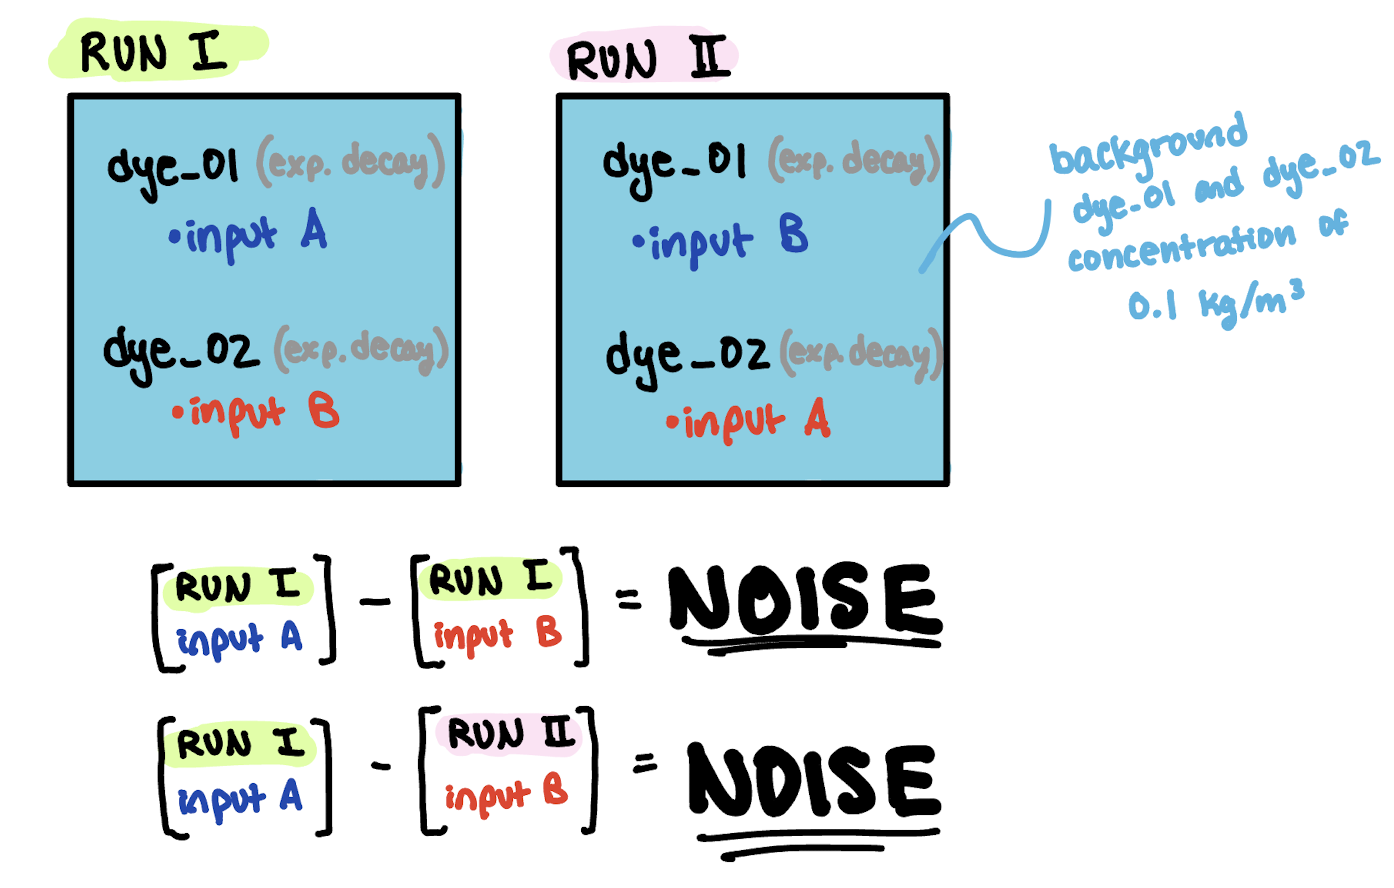 RUN I
dye_01 (exp. decay)
• input A
dye_02 (exp. decay)
• input B
RUN II
dye_01 (exp. decay)
• input B
dye_02 (exp. decay)
• input A
background
dye_01 and dye_02
concentration of
0.1 kg/m³
[RUN I input A] - [RUN I input B] = NOISE
[RUN I input A] - [RUN II input B] = NOISE